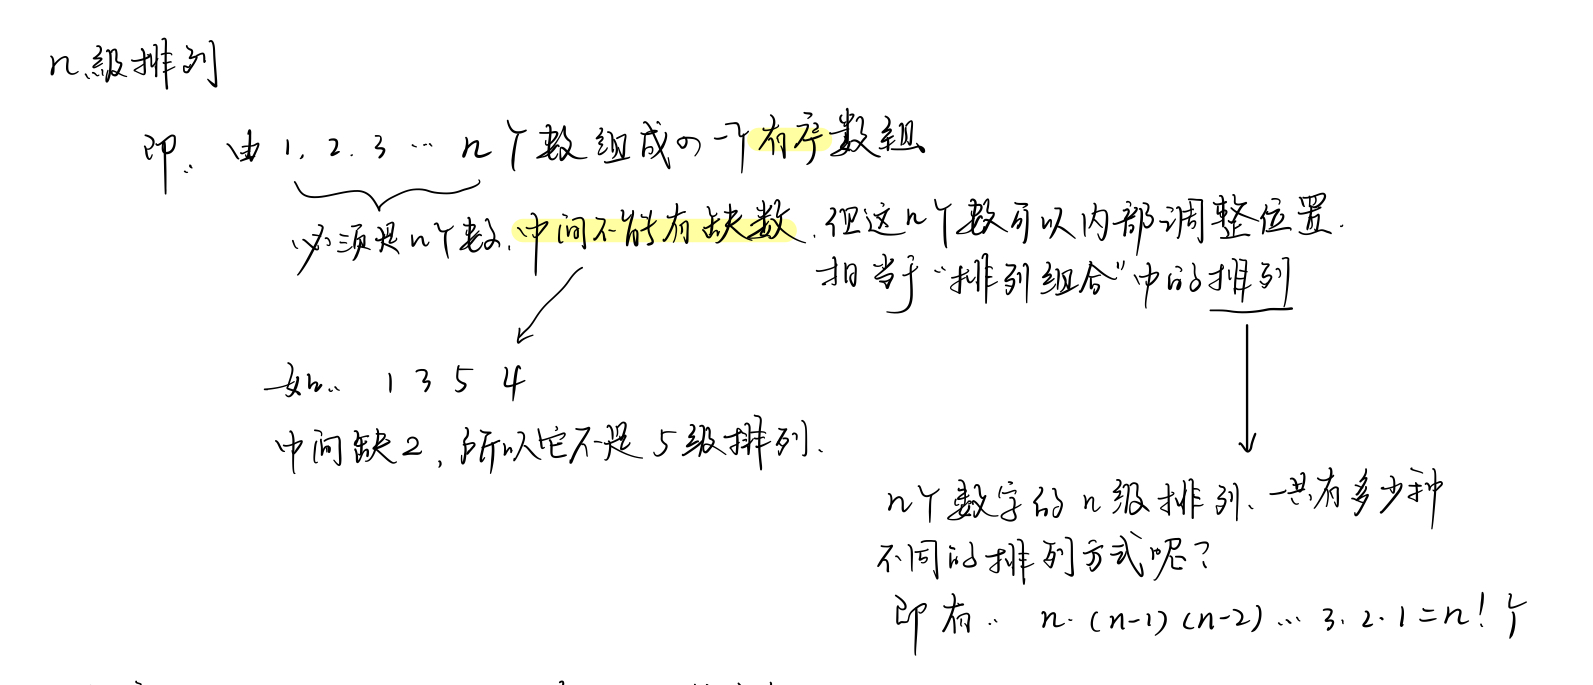 n级排列
即: 由 1, 2. 3 … n 个数组成の一个有序数组
必须是n个数, 中间不能有缺数, 但这n个数可以内部调整位置.
相当于“排列组合”中的排列
如: 1 3 5 4
中间缺2, 所以它不是5级排列.
n个数字的n级排列、一共有多少种
不同的排列方式呢?
即有: n·(n-1)(n-2)…3·2·1=n!个